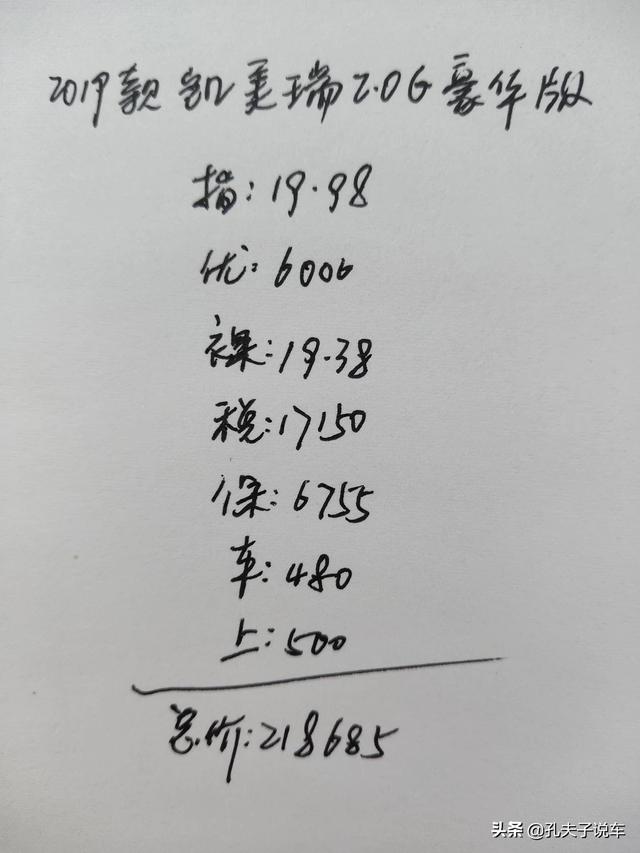 2019款 凯美瑞2.0G豪华版
指:19.98
优:6000
裸:19.38
税:17150
保:6755
车:480
上:500
总价:218685
头条 @孔夫子说车